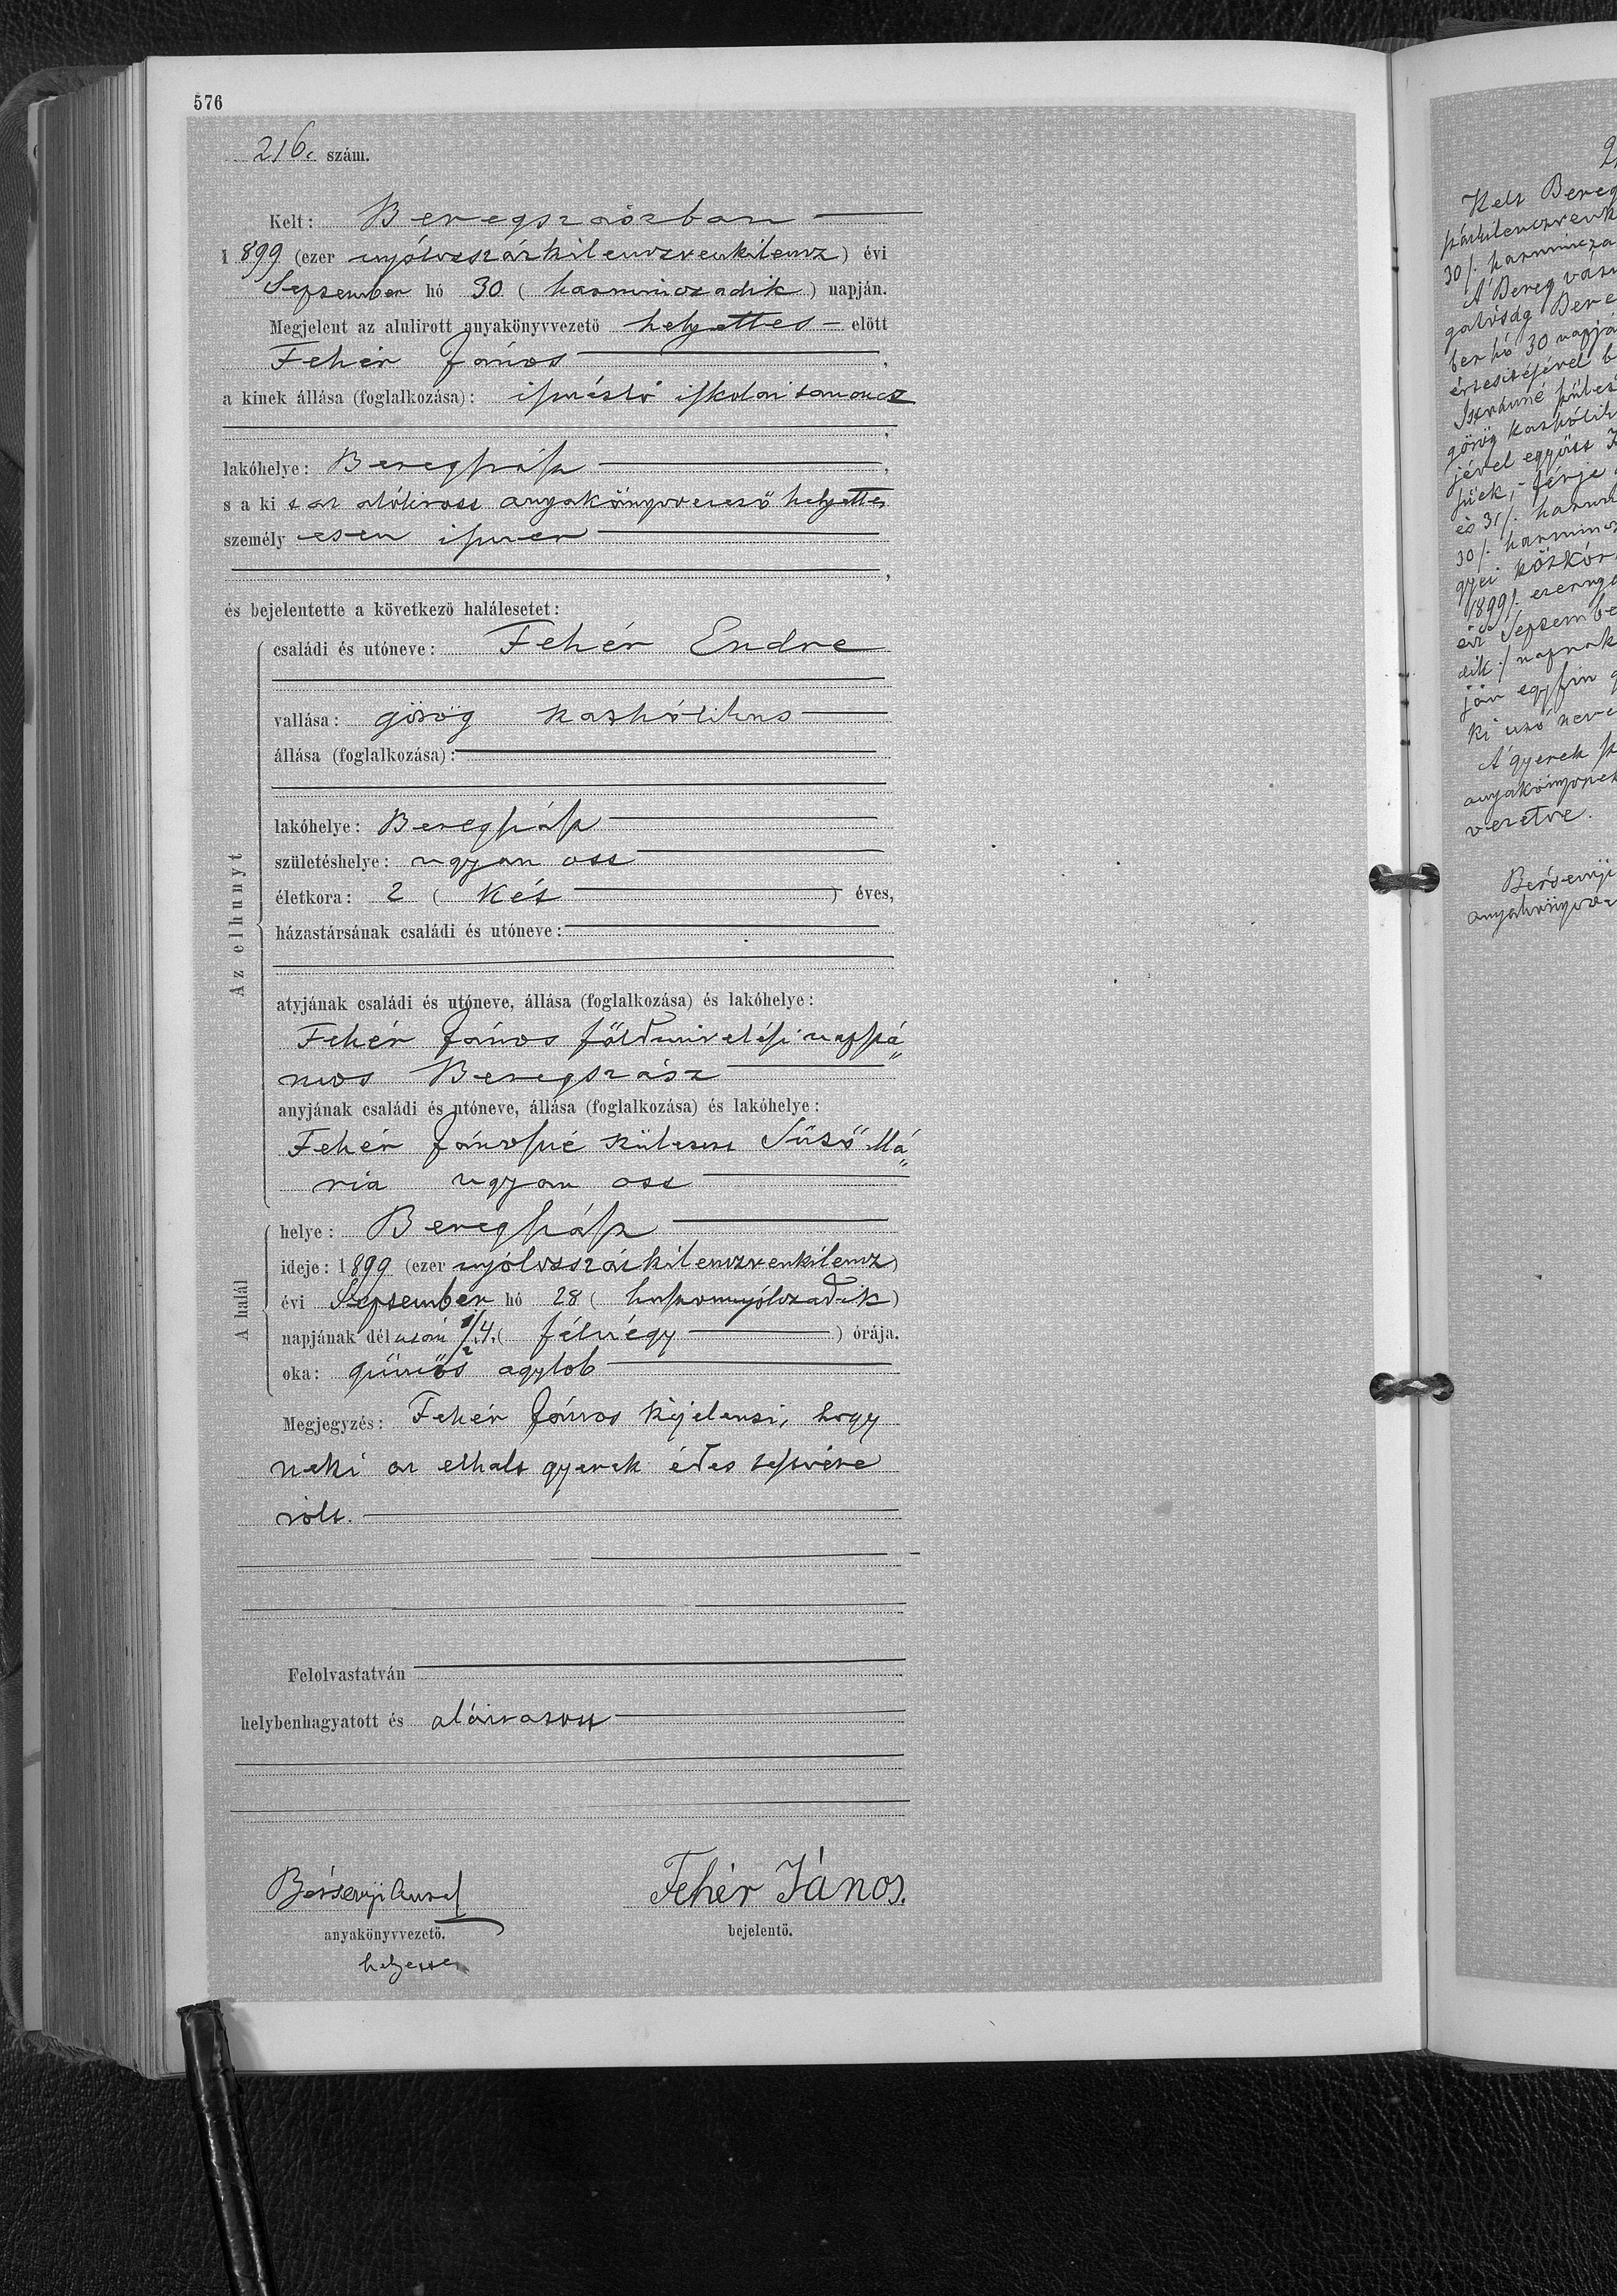 576
216. szám.
Kelt: Beregszászban
1899 (ezer nyólczszázkilenczvenkilencz) évi
September hó 30 (harminczadik) napján.
Megjelent az alulirott anyakönyvvezető helyettes előtt
Fehér János,
a kinek állása (foglalkozása): ismétlő iskolai tanoncz
,
lakóhelye: Beregszász,
s a kit az alólirott anyakönyvvezető helyettes
személyesen ismer
,
és bejelentette a következő halálesetet:
Az elhunyt
családi és utóneve: Fehér Endre
vallása: görög katholikus
állása (foglalkozása):
lakóhelye: Beregszász
születéshelye: ugyan ott
életkora: 2 (két) éves,
házastársának családi és utóneve:
atyjának családi és utóneve, állása (foglalkozása) és lakóhelye:
Fehér János földmivelési napszá„
mos Beregszász
anyjának családi és utóneve, állása (foglalkozása) és lakóhelye:
Fehér Jánosné született Sütő Má„
ria ugyan ott
A halál
helye: Beregszász
ideje: 1899 (ezer nyólczszázkilenczvenkilencz)
évi September hó 28 (huszonnyólczadik)
napjának délutáni 1/2 4. (félnégy) órája.
oka: gümős agylob
Megjegyzés: Fehér János kijelenti, hogy
neki az elhalt gyerek édes testvére
vólt.
Felolvastatván
helybenhagyatott és aláiratott
Bersenyi Aurel
anyakönyvvezető.
helyettes
Fehér János.
bejelentő.
Kelt Bereg
30/. harmincza
A Bereg vár
ber hó 30 napjá
görög katholik
és 31/. harm
30/. harmincz
gyei közkór
A gyerek
anyakönyv
vezetve.
Bersenyi
anyakönyv